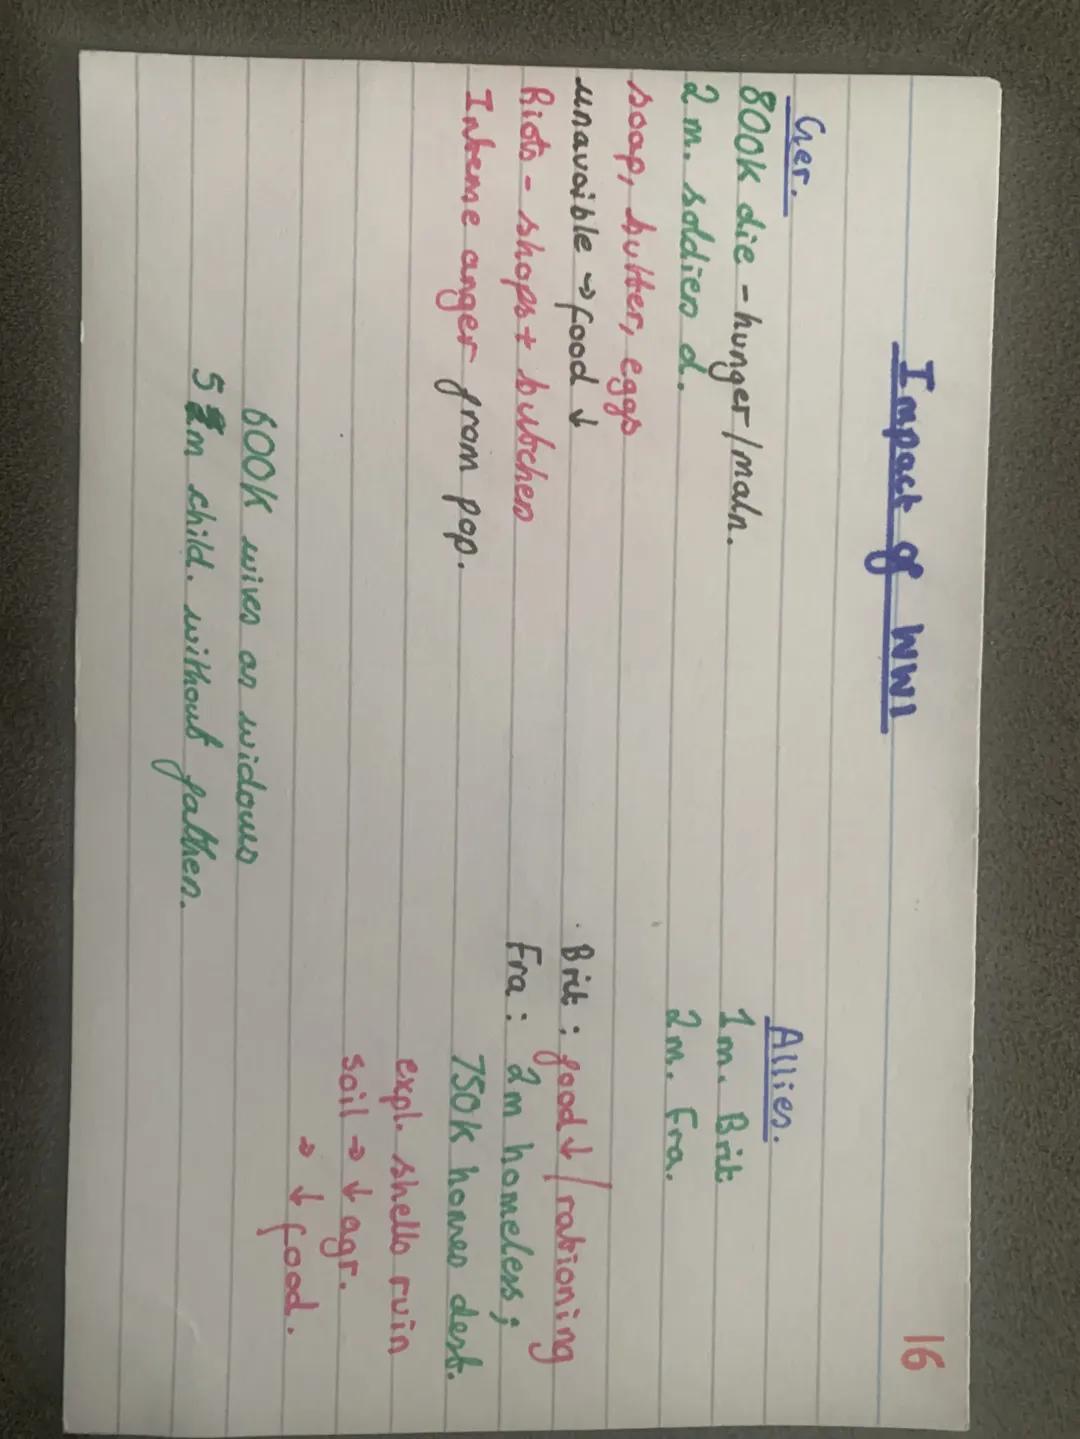 16
Impact of WW1
Ger.
800K die - hunger/maln.
2m. soldiers d.
soap, butter, eggs
unavaible → food ↓
Riots - shops + butchers
Intense anger from pop.
Allies.
1m. Brit
2m. Fra.
Brit: food ↓ / rationing
Fra: 2m homeless;
750K homes dest.
expl. shells ruin
soil → ↓ agr.
→ ↓ food.
600K wives as widows
5 m child. without fathers.